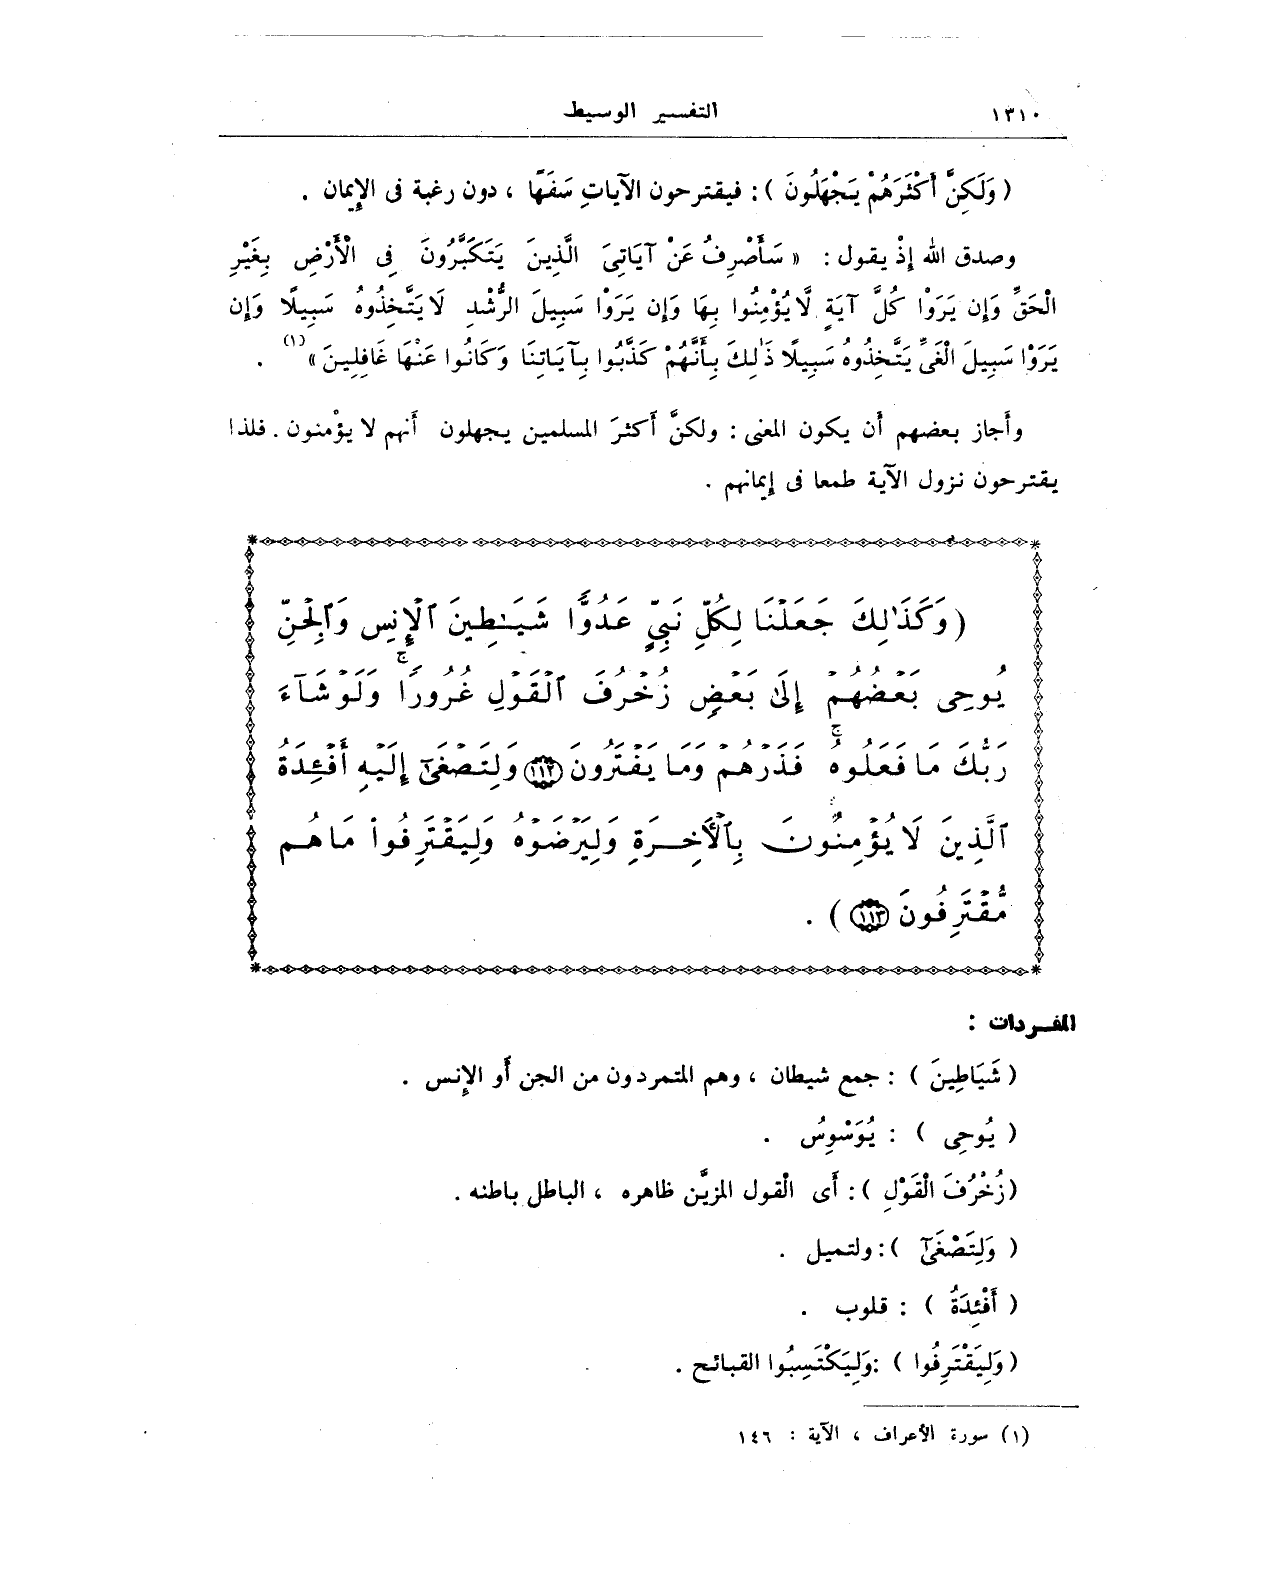 ١٣١٠ التفسير الوسيط
( وَلَكِنَّ أَكْثَرَهُمْ يَجْهَلُونَ ) : فيقترحون الآياتِ سَفَهًا ، دون رغبة فى الإِيمان .
وصدق الله إِذْ يقول : « سَأَصْرِفُ عَنْ آيَاتِىَ الَّذِينَ يَتَكَبَّرُونَ فِى الْأَرْضِ بِغَيْرِ
الْحَقِّ وَإِن يَرَوْا كُلَّ آيَةٍ لَّا يُؤْمِنُوا بِهَا وَإِن يَرَوْا سَبِيلَ الرُّشْدِ لَا يَتَّخِذُوهُ سَبِيلًا وَإِن
يَرَوْا سَبِيلَ الْغَىِّ يَتَّخِذُوهُ سَبِيلًا ذَٰلِكَ بِأَنَّهُمْ كَذَّبُوا بِآيَاتِنَا وَكَانُوا عَنْهَا غَافِلِينَ » (١) .
وأَجاز بعضهم أَن يكون المعنى : ولكنَّ أَكثرَ المسلمين يجهلون أَنهم لا يؤْمنون . فلذا
يقترحون نزول الآية طمعا فى إِيمانهم .
( وَكَذَٰلِكَ جَعَلْنَا لِكُلِّ نَبِيٍّ عَدُوًّا شَيَـٰطِينَ ٱلْإِنسِ وَٱلْجِنِّ
يُوحِى بَعْضُهُمْ إِلَىٰ بَعْضٍ زُخْرُفَ ٱلْقَوْلِ غُرُورًا ۚ وَلَوْ شَآءَ
رَبُّكَ مَا فَعَلُوهُ ۖ فَذَرْهُمْ وَمَا يَفْتَرُونَ ﴿١١٢﴾ وَلِتَصْغَىٰٓ إِلَيْهِ أَفْـِٔدَةُ
ٱلَّذِينَ لَا يُؤْمِنُونَ بِٱلْأَخِرَةِ وَلِيَرْضَوْهُ وَلِيَقْتَرِفُوا۟ مَا هُم
مُّقْتَرِفُونَ ﴿١١٣﴾ ) .
المفـردات :
( شَيَاطِينَ ) : جمع شيطان ، وهم المتمردون من الجن أَو الإِنس .
( يُوحِى ) : يُوَسْوِسُ .
( زُخْرُفَ الْقَوْلِ ) : أَى الْقول المزيَّن ظاهره ، الباطل باطنه .
( وَلِتَصْغَىٓ ) : ولتميل .
( أَفْئِدَةُ ) : قلوب .
( وَلِيَقْتَرِفُوا ) : وَلِيَكْتَسِبُوا القبائح .
(١) سورة الأعراف ، الآية : ١٤٦